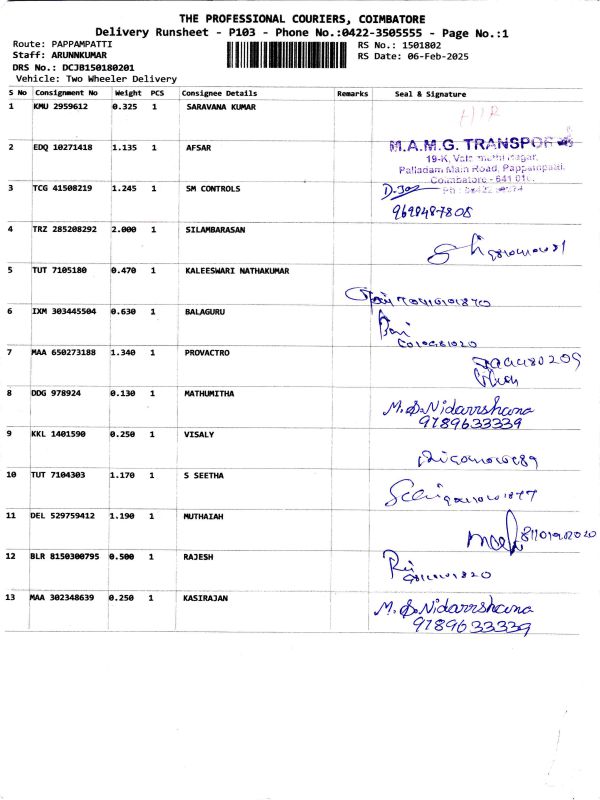 THE PROFESSIONAL COURIERS, COIMBATORE
Delivery Runsheet - P103 - Phone No.:0422-3505555 - Page No.:1
Route: PAPPAMPATTI
Staff: ARUNNKUMAR
DRS No.: DCJB150180201
Vehicle: Two Wheeler Delivery
RS No.: 1501802
RS Date: 06-Feb-2025
S No Consignment No Weight PCS Consignee Details Remarks Seal & Signature
1 KMU 2959612 0.325 1 SARAVANA KUMAR
2 EDQ 10271418 1.135 1 AFSAR
M.A.M.G. TRANSPOR
19-K,
Palladam Main Road, Pappampatti,
Coimbatore - 641 016.
3 TCG 41508219 1.245 1 SM CONTROLS
9698487808
4 TRZ 285208292 2.000 1 SILAMBARASAN
5 TUT 7105180 0.470 1 KALEESWARI NATHAKUMAR
6 IXM 303445504 0.630 1 BALAGURU
7 MAA 650273188 1.340 1 PROVACTRO
8 DDG 978924 0.130 1 MATHUMITHA M.S.Nidarrshana
9789633339
9 KKL 1401590 0.250 1 VISALY
10 TUT 7104303 1.170 1 S SEETHA
11 DEL 529759412 1.190 1 MUTHAIAH
12 BLR 8150300795 0.500 1 RAJESH
13 MAA 302348639 0.250 1 KASIRAJAN M.S.Nidarrshana
9789633339